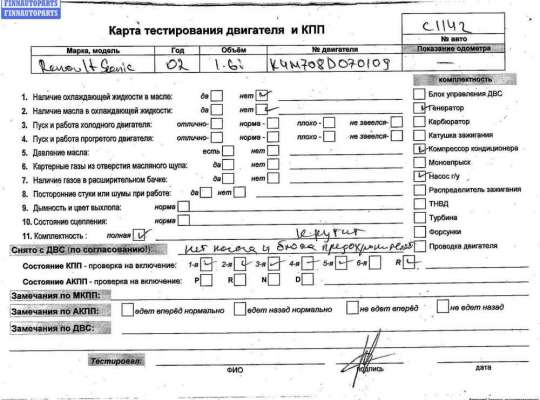 FINNAUTOPARTS
FINNAUTOPARTS
Карта тестирования двигателя и КПП
C1142
№ авто
Марка, модель Год Объём № двигателя Показание одометра
Renault Scenic 02 1.6i K4M708D070109 —
комплектность
1. Наличие охлаждающей жидкости в масле: да нет
2. Наличие масла в охлаждающей жидкости: да нет
3. Пуск и работа холодного двигателя: отлично- норма - плохо - не завелся-
4. Пуск и работа прогретого двигателя: отлично- норма - плохо - не завелся-
5. Давление масла: есть нет
6. Картерные газы из отверстия масляного щупа: да нет
7. Наличие газов в расширительном бачке: да нет
8. Посторонние стуки или шумы при работе: да нет
9. Дымность и цвет выхлопа: норма
10. Состояние сцепления: норма
11. Комплектность : полная крутит
Блок управления ДВС
Генератор
Карбюратор
Катушка зажигания
Компрессор кондиционера
Моновпрыск
Насос г/у
Распределитель зажигания
ТНВД
Турбина
Форсунки
Проводка двигателя
Снято с ДВС (по согласованию!): нет насоса и блока предохранителей
Состояние КПП - проверка на включение: 1-я 2-я 3-я 4-я 5-я 6-я R
Состояние АКПП - проверка на включение: P R N D
Замечания по МКПП:
Замечания по АКПП: едет вперёд нормально едет назад нормально не едет вперёд не едет назад
Замечания по ДВС:
Тестировал:
ФИО подпись дата